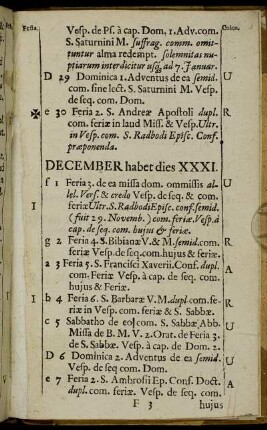 Festa. Color.
Vesp. de Ps. à cap. Dom. 1. Adv. com.
S. Saturnini M. suffrag. comm. omit-
tuntur alma redempt. solemnitas nu-
ptiarum interdicitur usq₃ ad 7. Januar.
D 29 Dominica 1. Adventus de ea semid. U
com. sine lect. S. Saturnini M. Vesp.
de seq. com. Dom.
✠ e 30 Feria 2. S. Andreæ Apostoli dupl. R
com. feriæ in laud Miss. & Vesp. Ultr.
in Vesp. com. S. Radbodi Episc. Conf.
præponenda.
DECEMBER habet dies XXXI.
f 1 Feria 3. de ea missa dom. ommissis al- U
lel. Vers. & credo Vesp. de seq. & com.
I feriæ Ultr. S. Radbodi Episc. conf. semid.
(fuit 29. Novemb.) com. feriæ. Vesp. à
cap. de seq. com. hujus & feriæ.
g 2 Feria 4. S. Bibianæ V. & M. semid. com. R
feriæ Vesp. de seq. com. hujus & feriæ.
a 3 Feria 5. S. Francisci Xaverii. Conf. dupl. A
com. Feriæ Vesp. à cap. de seq. com.
hujus & Feriæ.
I b 4 Feria 6. S. Barbaræ V. M. dupl. com. fe- R
riæ in Vesp. com. feriæ & S. Sabbæ.
c 5 Sabbatho de eo com. S. Sabbæ Abb. U
Missa de B. M. V. 2. Orat. de Feria 3.
de S. Sabbæ. Vesp. à cap. de Dom. 2.
D 6 Dominica 2. Adventus de ea semid. U
Vesp. de seq com. Dom.
e 7 Feria 2. S. Ambrosii Ep. Conf. Doct. A
dupl. com. feriæ. Vesp. de seq. com.
F 3 hujus